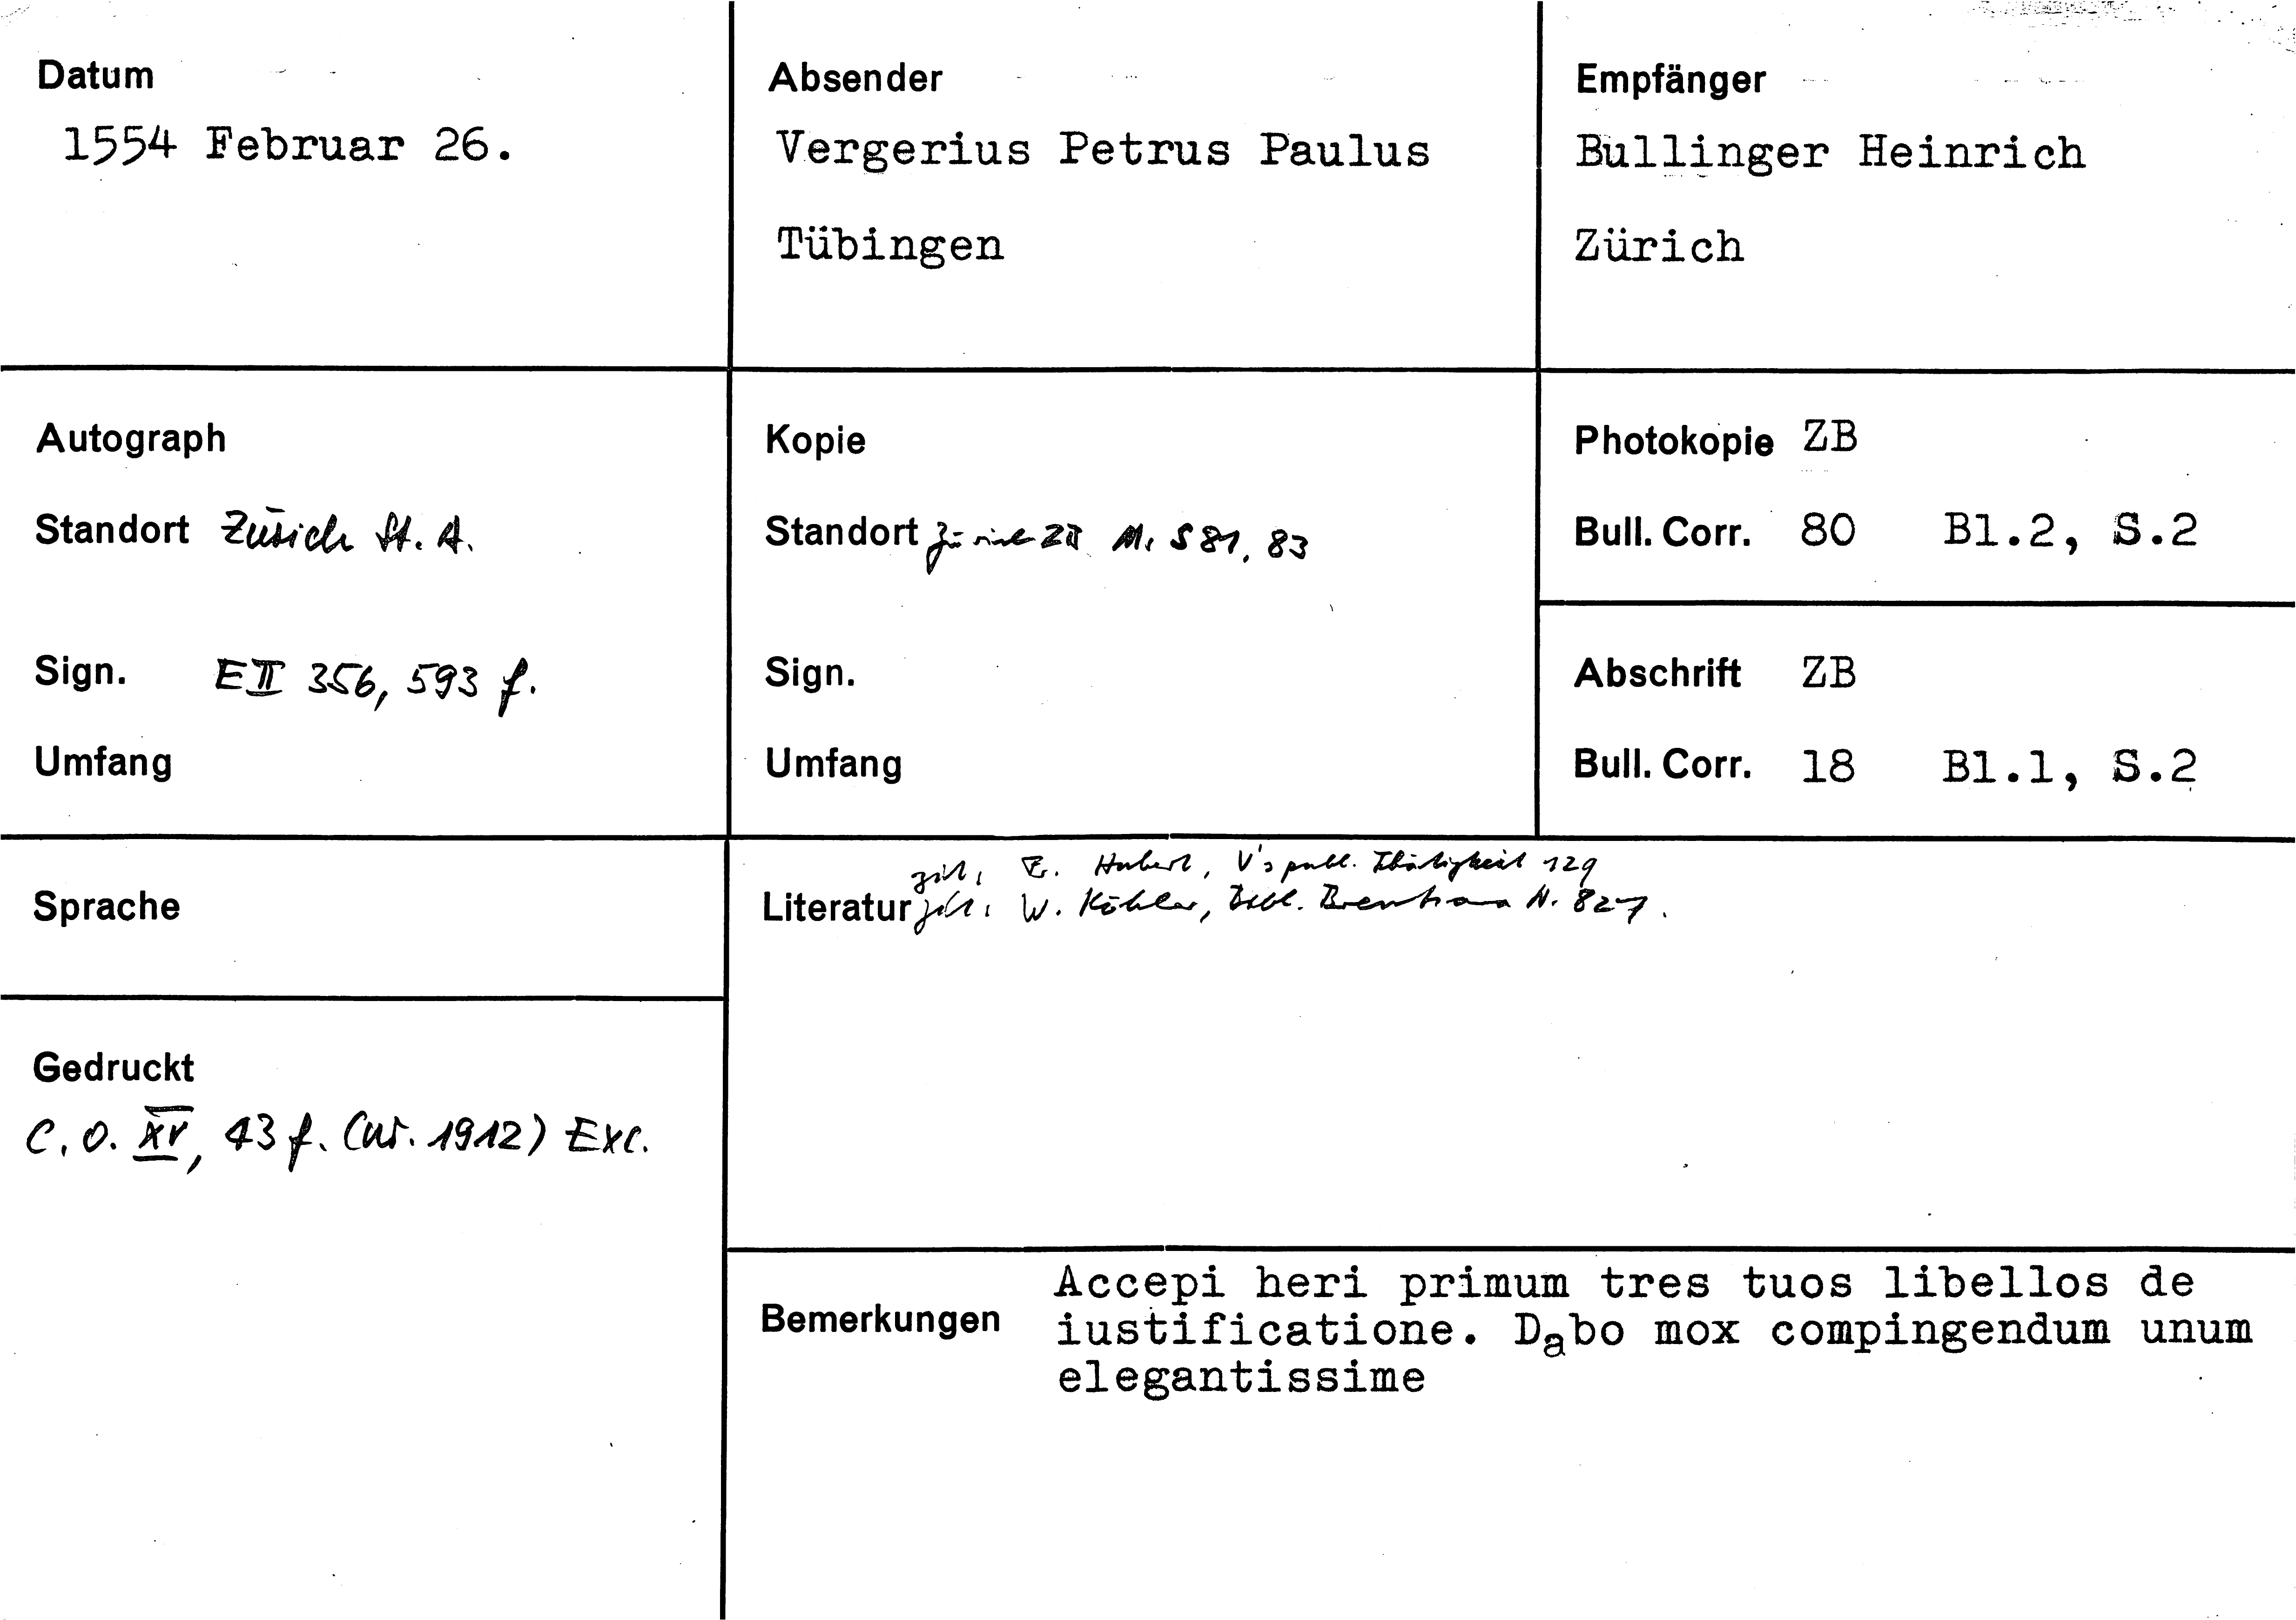 Datum
1554 Februar 26.
Absender
Vergerius Petrus Paulus
Tübingen
Empfänger
Bullinger Heinrich
Zürich
Autograph
Standort Zürich St. A.
Sign. E II 356, 593 f.
Umfang
Kopie
Standort Zürich ZB Ms S 81, 83
Sign.
Umfang
Photokopie ZB
Bull. Corr. 80 Bl.2, S.2
Abschrift ZB
Bull. Corr. 18 Bl.1, S.2
Sprache
Gedruckt
C. O. XV, 43 f. (Nr. 1912) Exc.
zit. Hubert, V's publ. Thätigkeit 129
Literatur zit. W. Köhler, Bibl. Brentiana N. 827.
Bemerkungen
Accepi heri primum tres tuos libellos de
iustificatione. Dabo mox compingendum unum
elegantissime